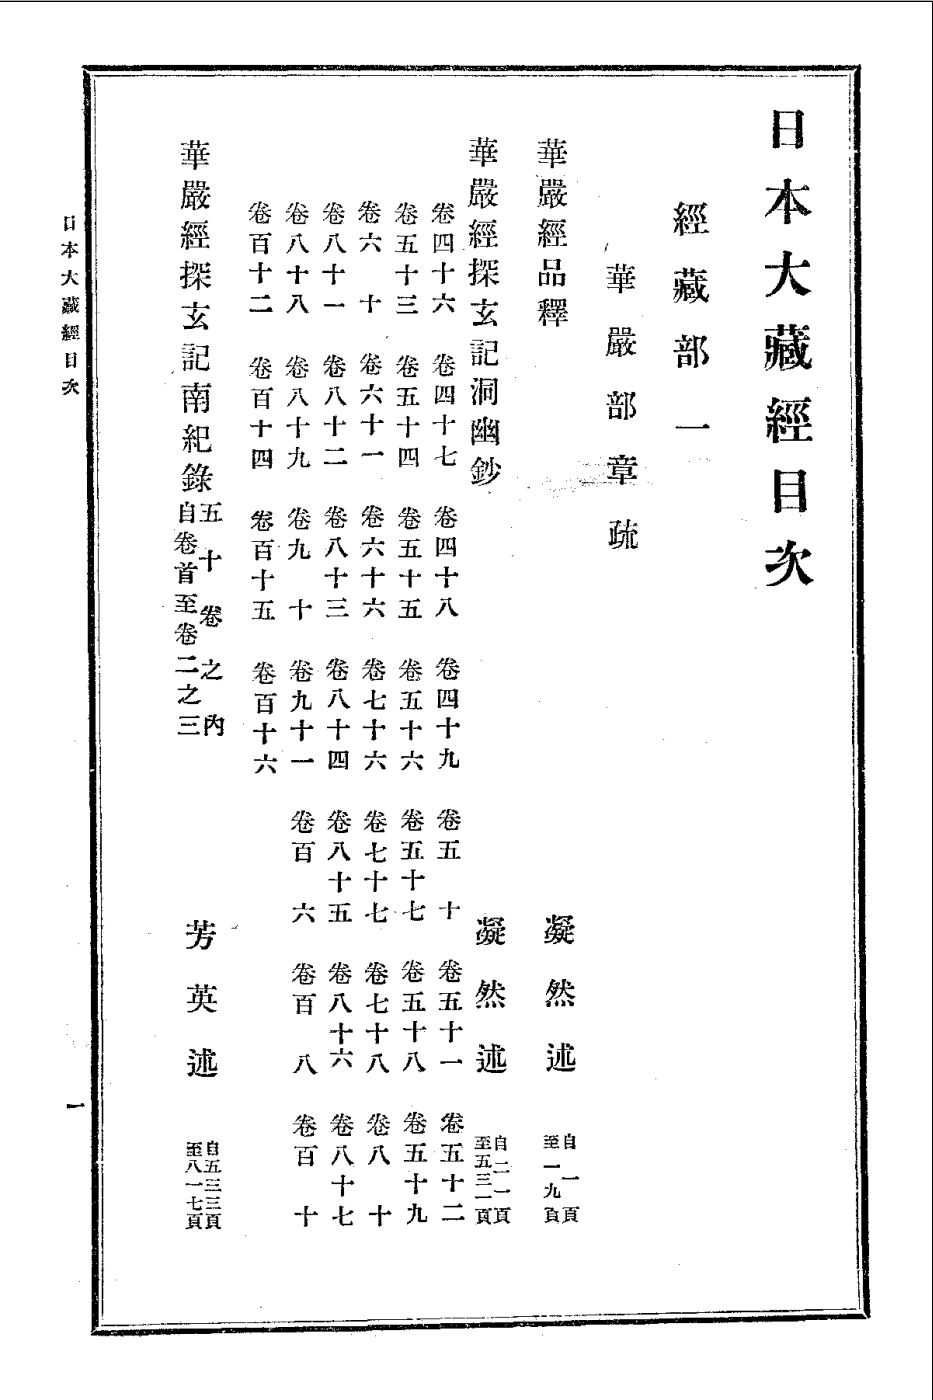 日本大藏經目次
經藏部一
華嚴部章疏
華嚴經品釋　凝然述　自一頁至一九頁
華嚴經探玄記洞幽鈔　凝然述　自二一頁至五三一頁
卷四十六　卷四十七　卷四十八　卷四十九　卷五十　卷五十一　卷五十二
卷五十三　卷五十四　卷五十五　卷五十六　卷五十七　卷五十八　卷五十九
卷六十　卷六十一　卷六十六　卷七十六　卷七十七　卷七十八　卷八十
卷八十一　卷八十二　卷八十三　卷八十四　卷八十五　卷八十六　卷八十七
卷八十八　卷八十九　卷九十　卷九十一　卷百六　卷百八　卷百十
卷百十二　卷百十四　卷百十五　卷百十六
華嚴經探玄記南紀錄　五十卷之內自卷首至卷二之三　芳英述　自五三三頁至八一七頁
日本大藏經目次
一